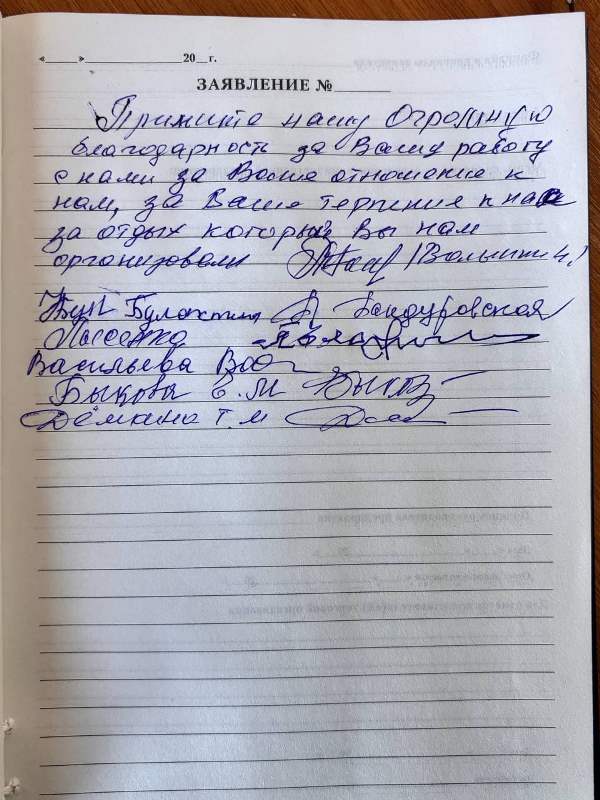 «____»______________20__г.
ЗАЯВЛЕНИЕ №______
Примите нашу Огромную
благодарность за Вашу работу
с нами за Ваше отношение к
нам, за Ваше терпение к нам
за отдых который Вы нам
организовали
Бандуровская
Лысенко
Васильева
Быкова Е.М Быков
Дёмкина Т.М